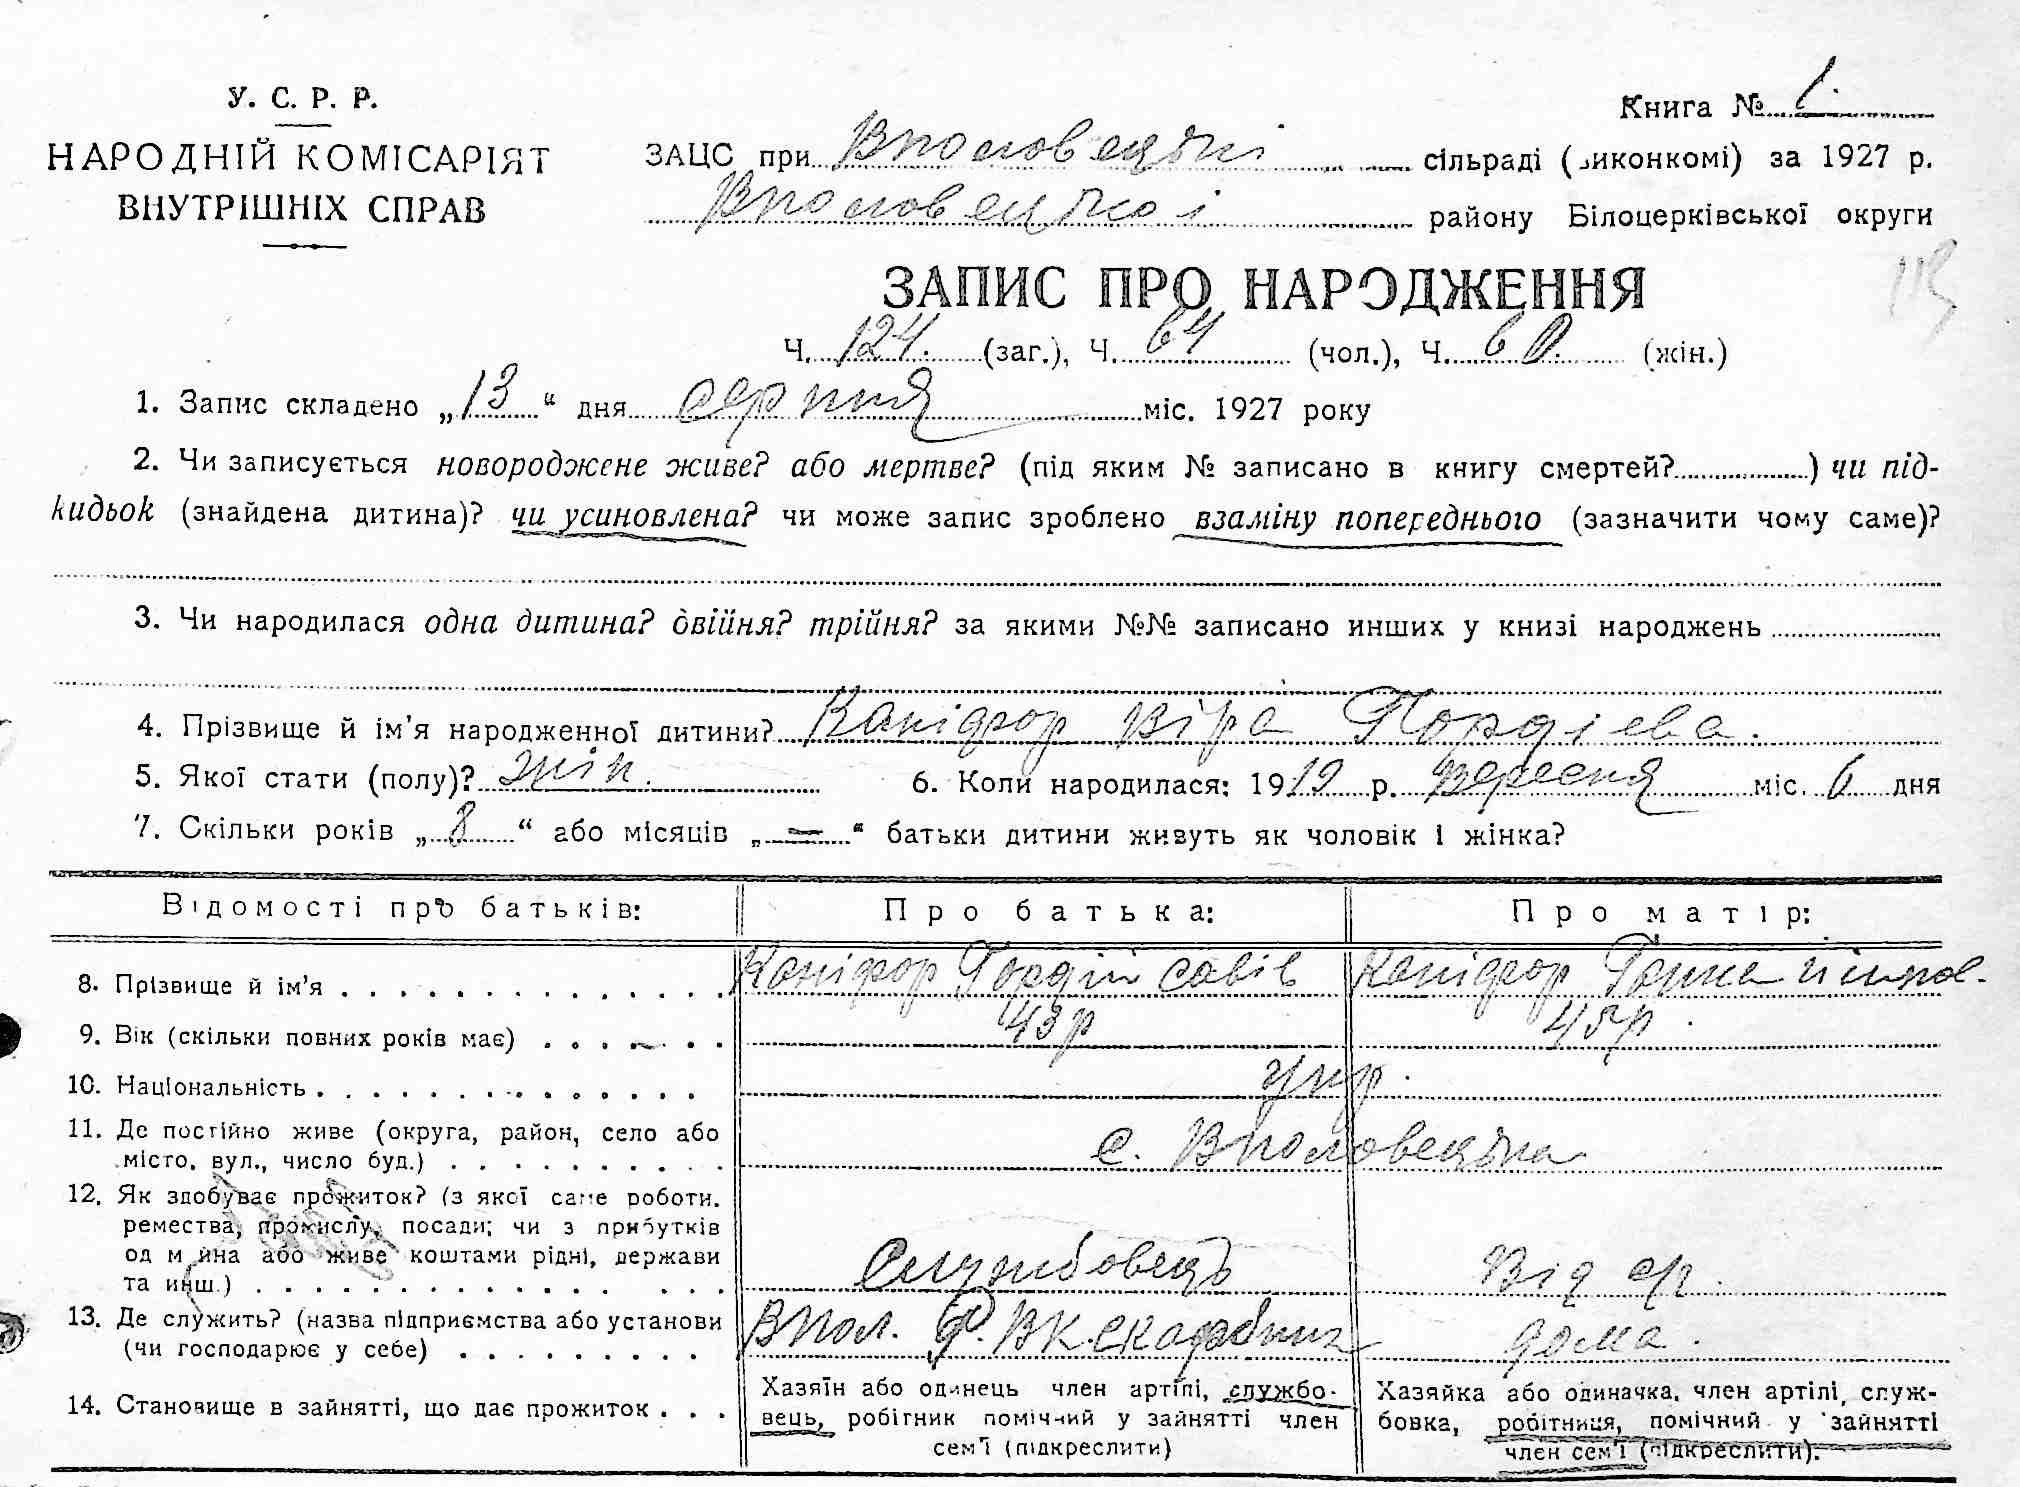 У. С. Р. Р.
НАРОДНІЙ КОМІСАРІЯТ
ВНУТРІШНІХ СПРАВ
Книга № 1.
ЗАЦС при Вполовецькі сільраді (виконкомі) за 1927 р.
Вполовецької району Білоцерківської округи
ЗАПИС ПРО НАРОДЖЕННЯ
Ч. 124. (заг.), Ч. 64 (чол.), Ч. 60. (жін.)
1. Запис складено „13“ дня серпня міс. 1927 року
2. Чи записується новороджене живе? або мертве? (під яким № записано в книгу смертей?) чи під-
кидьок (знайдена дитина)? чи усиновлена? чи може запис зроблено взаміну попереднього (зазначити чому саме)?
3. Чи народилася одна дитина? двійня? трійня? за якими №№ записано инших у книзі народжень
4. Прізвище й ім’я народженної дитини? Каніфор Віра Гордієва.
5. Якої стати (полу)? жін. 6. Коли народилася: 1919 р. вересня міс. 6 дня
7. Скільки років „8“ або місяців „=“ батьки дитини живуть як чоловік і жінка?
Відомості про батьків: Про батька: Про матір:
8. Прізвище й ім’я Каніфор Гордій Савів Каніфор Ганна
9. Вік (скільки повних років має) 43 р 45 р.
10. Національність укр.
11. Де постійно живе (округа, район, село або
місто, вул., число буд.) с. Вполовецька
12. Як здобуває прожиток? (з якої саме роботи,
ремества, промислу, посади; чи з прибутків
од майна або живе коштами рідні, держави
та инш.) Службовець Від с/г.
13. Де служить? (назва підприємства або установи
(чи господарює у себе) Впол. Р.ВК. дома.
14. Становище в зайнятті, що дає прожиток
Хазяїн або одинець член артілі, службо-
вець, робітник помічний у зайнятті член
сем’ї (підкреслити)
Хазяйка або одиначка, член артілі, служ-
бовка, робітниця, помічний у зайнятті
член сем’ї (підкреслити).